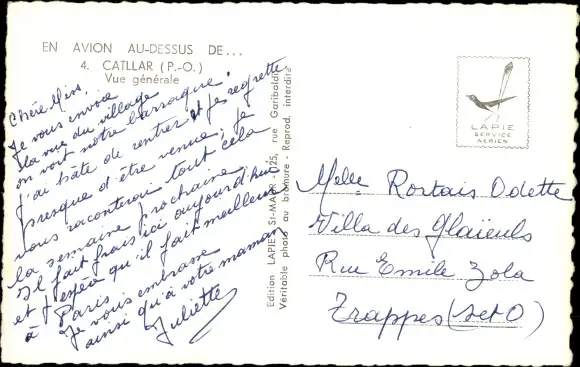 EN AVION AU-DESSUS DE...
4. CATLLAR (P.-O.)
Vue générale
Chère Miss,
Je vous envoie
la vue du village
on voit notre barraque.
J'ai hâte de rentrer et je regrette
presque d'être venue; je
vous raconterai tout cela
la semaine prochaine.
Il fait frais ici aujourd'hui
et j'espère qu'il fait meilleur
à Paris
Je vous embrasse
ainsi qu'à votre maman
Juliette
Edition LAPIE, St-MAUR - 25, rue Garibaldi
Véritable photo au bromure - Reprod. interdite
LAPIE
SERVICE
AERIEN
Melle Rostais Odette
Villa des Glaïeuls
Rue Emile Zola
Trappes (S et O)